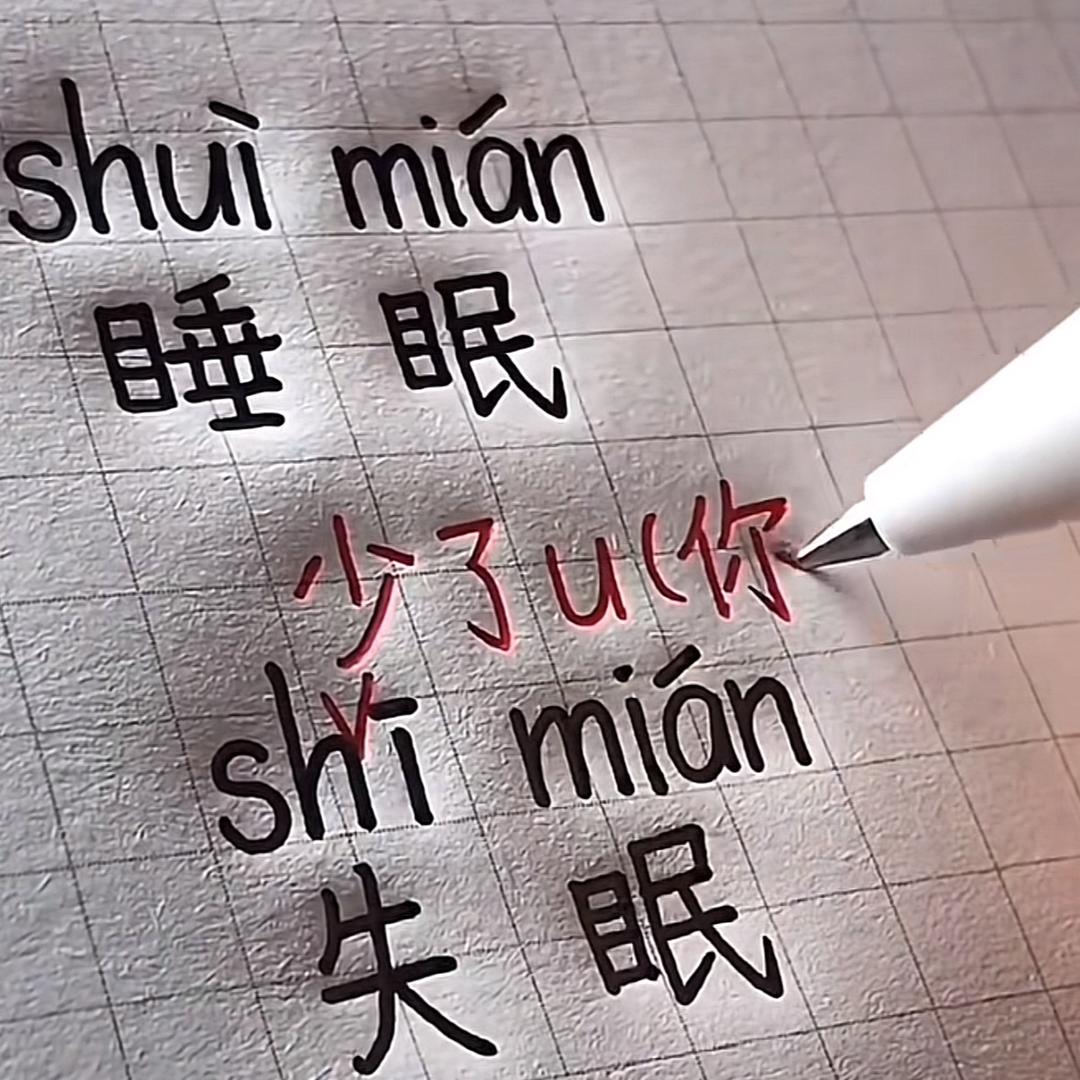 shuì mián
睡眠
少了u(你
shī mián
失眠